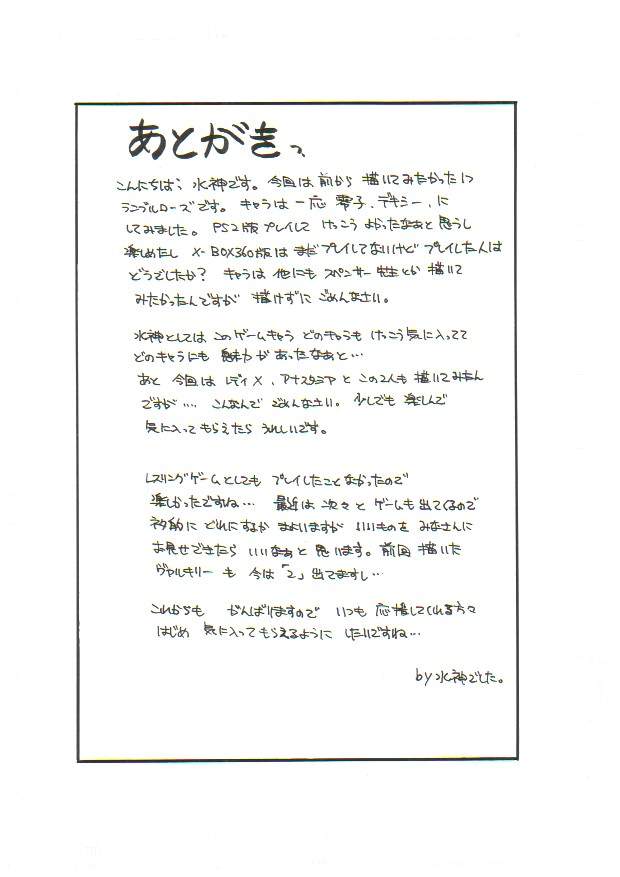 あとがきっ
こんにちは、水神です。今回は前から描いてみたかった
ランブルローズです。キャラは一応 零子、デキシー、に
してみました。PS2版プレイして けっこう よかったなぁと思うし
楽しめたし X-BOX360版は まだプレイしてないけど プレイした人は
どうでしたか? キャラは 他にも スペンサー先生とか 描いて
みたかったんですが 描けずに ごめんなさい。
水神としては このゲームキャラ どのキャラも けっこう気に入ってて
どのキャラにも 魅力があったなぁと…
あと 今回は レディX、アナスタシアと この2人も 描いてみたん
ですが… こんなんで ごめんなさい。少しでも 楽しんで
気に入ってもらえたら うれしいです。
レスリングゲームとしても プレイしたことなかったので
楽しかったですね… 最近は 次々と ゲームも出てくるので
ネタ的に どれにするか まよいますが いいものを みなさんに
お見せできたら いいなぁと 思います。前回 描いた
ヴァルキリー も 今は「2」出てますし…
これからも がんばりますので いつも 応援してくれる方々
はじめ 気に入ってもらえるように したいですね…
by水神でした。